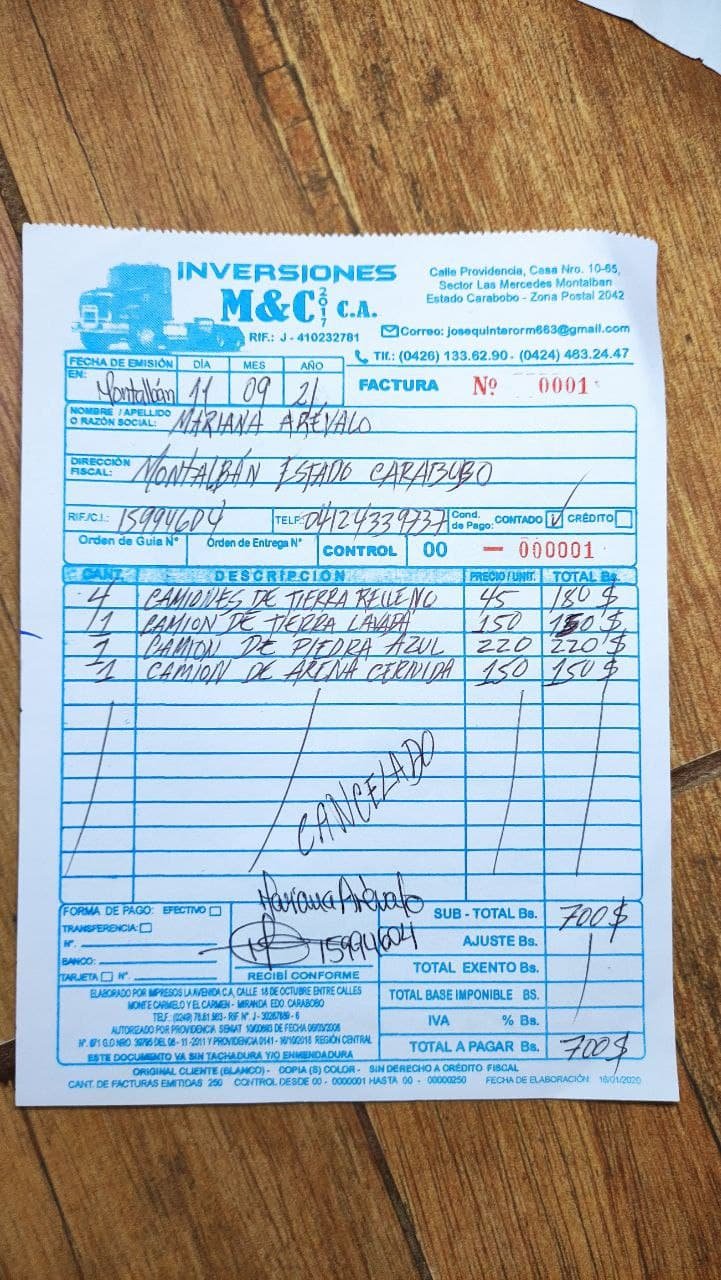 INVERSIONES
M&C 2017 C.A.
RIF.: J - 410232781
Calle Providencia, Casa Nro. 10-65,
Sector Las Mercedes Montalban
Estado Carabobo - Zona Postal 2042
Correo: josequinterorm663@gmail.com
Tlf.: (0426) 133.62.90 - (0424) 463.24.47
FECHA DE EMISIÓN EN: Montalbán DÍA 11 MES 09 AÑO 21
FACTURA Nº 0001
NOMBRE / APELLIDO O RAZÓN SOCIAL: MARIANA ARÉVALO
DIRECCIÓN FISCAL: MONTALBÁN ESTADO CARABOBO
RIF/C.I.: 15994604 TELF: 04124339737 Cond. de Pago: CONTADO CRÉDITO
Orden de Guía N° Órden de Entrega N° CONTROL 00 — 000001
CANT. DESCRIPCIÓN PRECIO / UNIT. TOTAL Bs.
4 CAMIONES DE TIERRA RELLENO 45 180 $
1 CAMION DE TIERRA LAVADA 150 150 $
1 CAMION DE PIEDRA AZUL 220 220 $
1 CAMION DE ARENA CERNIDA 150 150 $
CANCELADO
FORMA DE PAGO: EFECTIVO
TRANSFERENCIA:
N°.
BANCO:
TARJETA N°.
Mariana Arévalo
15994604
RECIBÍ CONFORME
SUB - TOTAL Bs. 700 $
AJUSTE Bs.
TOTAL EXENTO Bs.
TOTAL BASE IMPONIBLE BS.
IVA % Bs.
TOTAL A PAGAR Bs. 700 $
ELABORADO POR IMPRESOS LA AVENIDA C.A, CALLE 18 DE OCTUBRE ENTRE CALLES
MONTE CARMELO Y EL CARMEN - MIRANDA EDO. CARABOBO
ESTE DOCUMENTO VA SIN TACHADURA Y/O ENMENDADURA
ORIGINAL CLIENTE (BLANCO) - COPIA (S) COLOR - SIN DERECHO A CRÉDITO FISCAL
CANT. DE FACTURAS EMITIDAS 250 CONTROL DESDE 00 - 0000001 HASTA 00 - 00000250 FECHA DE ELABORACIÓN: 16/01/2020